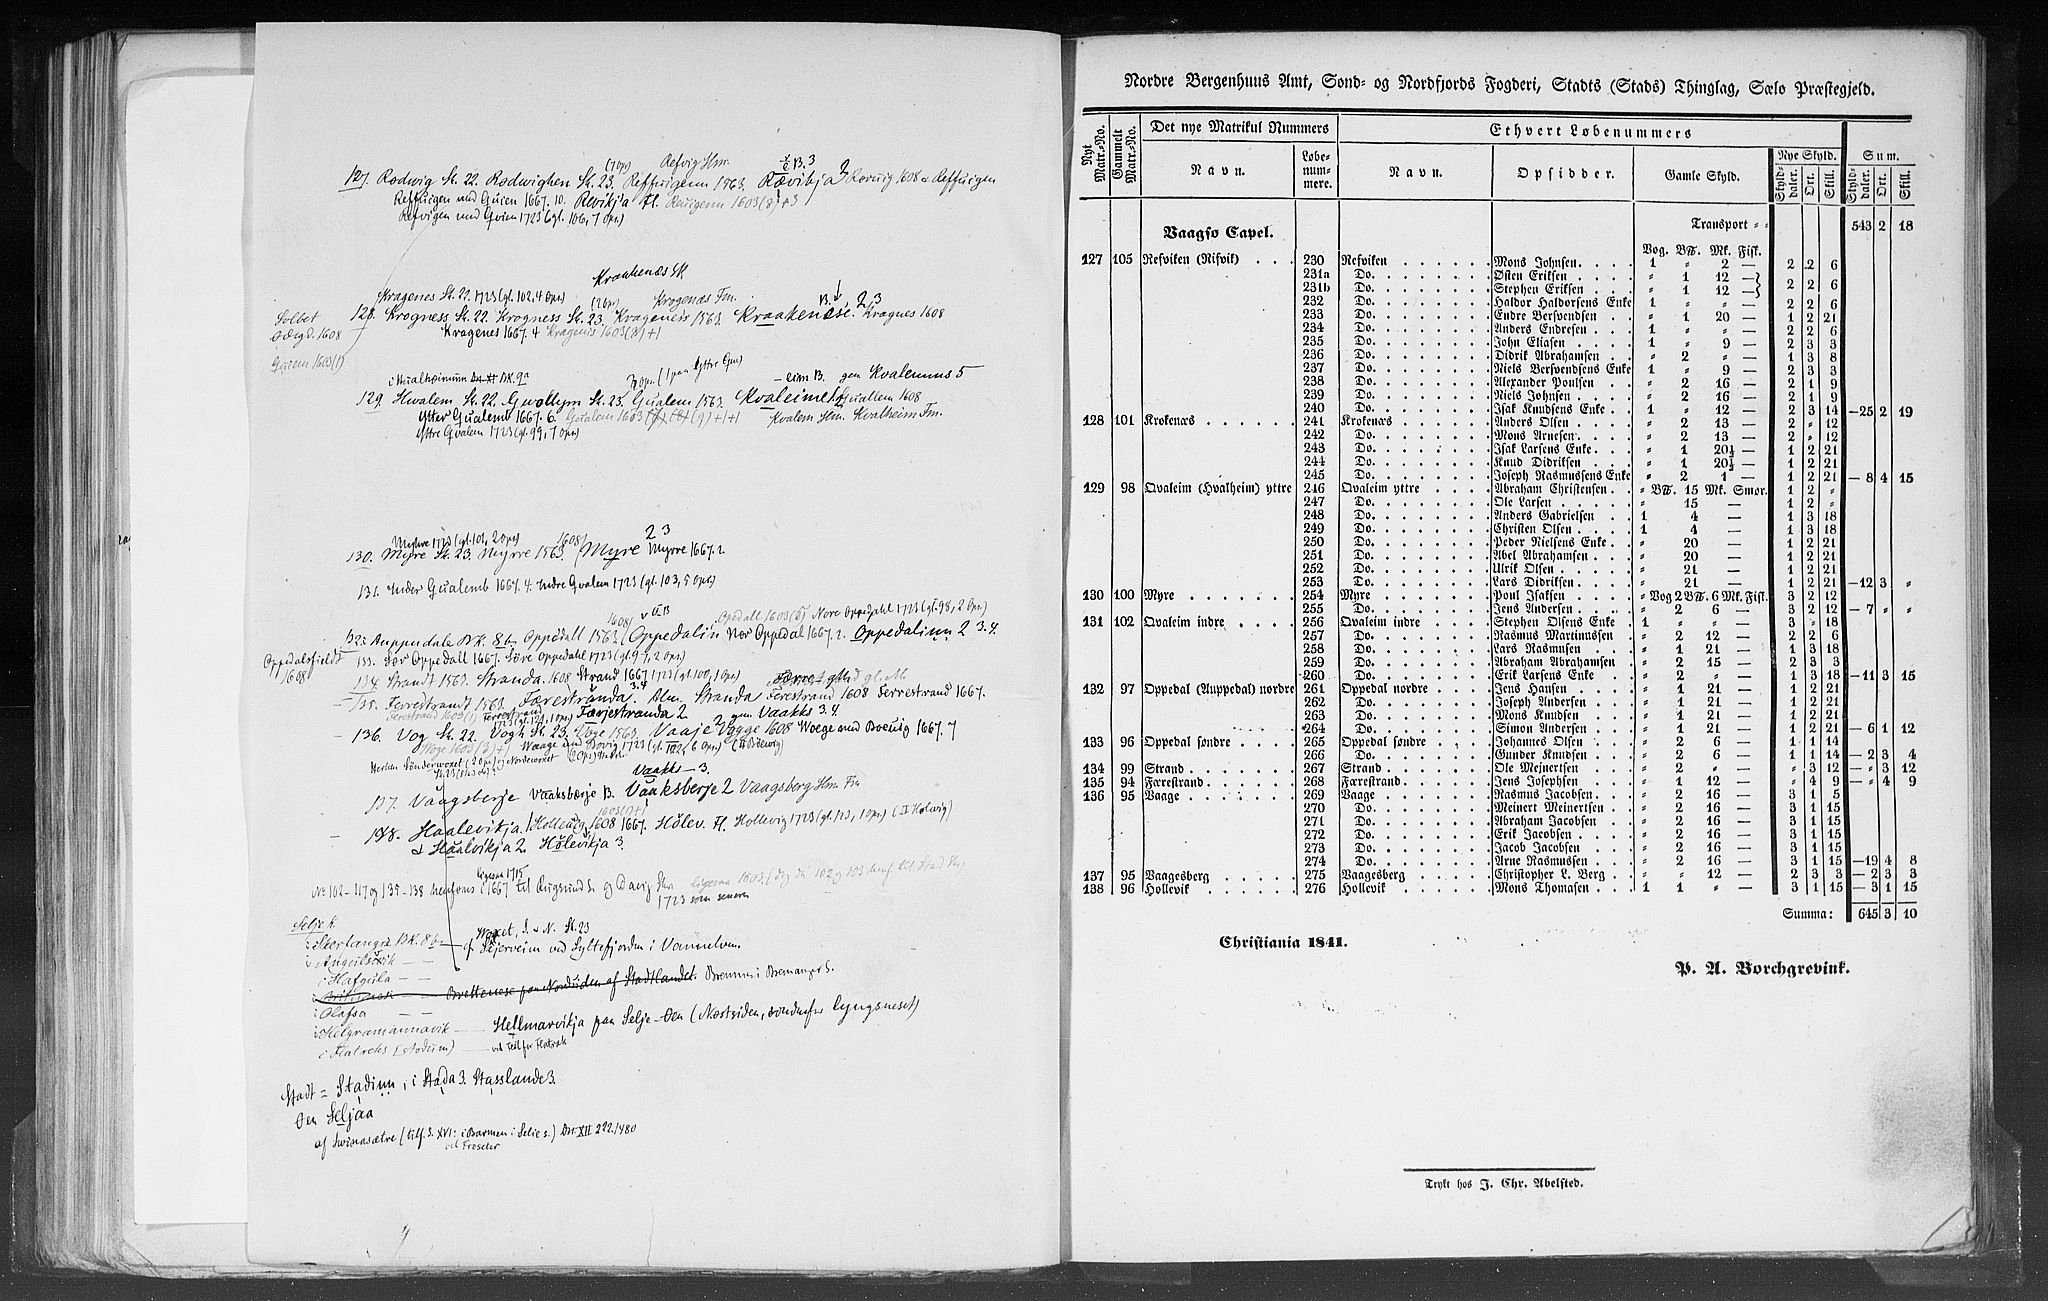 (7 opv) Refvig Hrn. B. 3
127. Rodwig Sk. 22. Rodwighen Sk. 23. Reffuigenn 1563. Rævikja 3 Roruig 1608 Reffuigen
Reffuigen med Guien 1667. 10. Revikja Fl. Rauigenn 1603 (8)+3
Refvigen med Gvien 1723 (gl. 106, 7 Opv)
Kraakenæs Sk
Kragenes Sk. 22. 1723 (gl. 102, 4 Opv) (2 opv) Krogenæs Fm.
Solbot
1608
128. Krogness Sk. 22. Krogness Sk. 23. Krageness 1563. Kraakenese. Kragnes 1608
Kragenes 1667. 4 Kragenis 1603 (8)+1
Guiem 1603 (1)
i Hualhæimum DN. XI BK. 9a
gen Kvalemms 5
129. Hwalem Sk. 22. Gwallym Sk. 23. Gualem 1563. Kvaleime Guallem 1608
Ytter Gualemb 1667. 6. Gualem 1603 (9)+1+1 Kvalem Hrn. Kvalheim Fm.
Yttre Gvalem 1723 (gl. 99, 7 Opv)
Myhre 1723 (gl. 101, 2 opv) 1608 2 3
130. Myre Sk. 23. Myrre 1563. Myre Myrre 1667. 2
131. Inder Gualemb 1667. 4. Indre Gvalem 1723 (gl. 103, 5 Opv)
Opedall 1603 (6) Nore Oppedahl 1723 (gl. 98, 2 Opv.)
132. Auppendale BK. 8b. Oppedall 1563. Oppedalin Nor Oppedal 1667. 2. Oppedalinn 2 3.4.
Oppedalsfieldt
1608
133. Sør Oppedall 1667. Søre Oppedahl 1723 (gl. 97, 2 Opv.)
134. Strandt 1563. Stranda. 1608 Strand 1667 1723 (gl. 100, 1 Opv)
135. Ferrestrandt 1563. Færestranda. Alm. Stranda Ferestrand 1608 Ferrestrand 1667.
Ferestrand 1603 (1) Ferrestrand Færjestranda 2
136. Vog Sk. 22. Vogh Sk. 23. Voge 1563. Vaaje 2 Vogge 1608 Woege med Boeuig 1667. 7
Voge 1603 (3)+1 Waage med Bovig 1723 6 Opv)
Vaakts — 3.
137. Vaagsberje Vaaksbærje B. Vaaksberje 2 Vaagsberg Hrn. Fm
138. Haalevikja. Holleuig 1608 1667. Hôlev. Fl. Hollevig 1723 (gl. 123, 1 Opv) (II Holevig)
& Haalvikja 2. Hølevikja 3.
ligesaa 1715
No 102–117 og 135–138 henføres i 1667 til Rugsund S. og Davig Skr
1723 som senere
Selje h.
i Skerlangre BK. 8b — cf Skjerveim ved Syltefjorden i Vannelven.
i Hafgula — —
Brettenese paa Nordsiden af Stadtlandet. Bremnes i Bremanger S.
i Olafsa — —
i Helgramannavik — Hellmarvikja paa Selje-Øen (Nordsiden, søndenfor Lyngsneset)
i Flatreks (stoderm) — ved Flatrak
Stadt = Stadinn, i Stada 3. Stasslande 3.
Øen Seljaa
af Swinasætre (tilf. S. XVI: i Barmen i Selje S.) DN. XII 222. 1480
ved Frøseter
Nordre Bergenhuus Amt, Sond- og Nordfjords Fogderi, Stadts (Stads) Thinglag, Sælo Præstegjeld.
Nyt Matr.-No. Gammelt Matr.-No. Det nye Matrikul Nummers Ethvert Løbenummers
Navn. Løbenummere. Navn. Opsidder. Gamle Skyld. Nye Skyld. Sum.
Skylddaler. Ort. Skill. Skylddaler. Ort. Skill.
Transport = = 543 2 18
Vaagsø Capel. Vog. BP. Mk. Fisk.
127 105 Refviken (Rifvik) . . . 230 Refviken . . . Mons Johnsen. 1 " 2 — 2 2 6
231a Do. Østen Eriksen " 1 12 —
231b Do. Stephen Eriksen " 1 12 — 2 2 6
232 Do. Haldor Haldorsens Enke 1 " " — 2 2 6
233 Do. Endre Bersvendsen " 1 20 — 1 2 21
234 Do. Anders Endresen 1 " " — 2 2 6
235 Do. John Eliasen 1 " 9 — 2 3 3
236 Do. Didrik Abrahamsen " 2 " — 1 3 8
237 Do. Niels Bersvendsens Enke 1 " 9 — 2 3 3
238 Do. Alexander Poulsen " 2 16 — 2 1 9
239 Do. Niels Johnsen " 2 16 — 2 1 9
240 Do. Isak Knudsens Enke 1 " 12 — 2 3 14 —25 2 19
128 101 Krokenæs . . . 241 Krokenæs Anders Olsen " 2 13 — 2 " 12
242 Do. Mons Arnesen " 2 13 — 2 " 12
243 Do. Isak Larsens Enke " 1 20½ — 1 2 21
244 Do. Knud Didriksen " 1 20½ — 1 2 21
245 Do. Joseph Rasmussens Enke " 2 1 — 1 2 21 — 8 4 15
129 98 Qvaleim (Hvalheim) yttre 246 Qvaleim yttre Abraham Christensen " BP. 15 Mk. Smor. 1 2 "
247 Do. Ole Larsen " 15 — 1 2 "
248 Do. Anders Gabrielsen 1 4 — 1 3 18
249 Do. Christen Olsen 1 4 — 1 3 18
250 Do. Peder Nielsens Enke " 20 — 1 2 21
251 Do. Abel Abrahamsen " 20 — 1 2 21
252 Do. Ulrik Olsen " 21 — 1 2 21
253 Do. Lars Didriksen " 21 — 1 2 21 —12 3 "
130 100 Myre . . . 254 Myre Poul Isaksen " Vog 2 BP. 6 Mk. Fisk. 3 2 12
255 Do. Jens Andersen " 2 6 — 3 2 12 — 7 " "
131 102 Qvaleim indre . . . 256 Qvaleim indre Stephen Olsens Enke 1 " " — 3 " 18
257 Do. Rasmus Martinussen " 2 12 — 2 2 6
258 Do. Lars Rasmusen " 1 21 — 1 3 18
259 Do. Abraham Abrahamsen " 2 15 — 2 3 3
260 Do. Erik Larsens Enke " 2 " — 1 3 18 —11 3 15
132 97 Oppedal (Auppedal) nordre 261 Oppedal nordre Jens Hansen " 1 21 — 1 2 21
262 Do. Joseph Andersen " 1 21 — 1 2 21
263 Do. Mons Knudsen " 1 21 — 1 2 21
264 Do. Simon Andersen " 1 21 — 1 2 21 — 6 1 12
133 96 Oppedal søndre . . . 265 Oppedal søndre Johannes Olsen " 2 6 — 1 1 14
266 Do. Gunder Knudsen " 2 6 — 1 1 14 — 2 3 4
134 99 Strand . . . 267 Strand Ole Mejnertsen " 2 " — " 3 12 — " 3 12
135 94 Færestrand . . . 268 Færestrand Jens Josephsen " 1 12 — " 4 9 — " 4 9
136 95 Vaage . . . 269 Vaage Rasmus Jacobsen " 2 16 — 3 1 5
270 Do. Meinert Meinertsen " 2 16 — 3 1 15
271 Do. Abraham Jacobsen " 2 16 — 3 1 15
272 Do. Erik Jacobsen " 2 16 — 3 1 15
273 Do. Jacob Jacobsen " 2 16 — 3 1 15
274 Do. Arne Rasmussen " 2 16 — 3 1 15 —19 4 8
137 95 Vaagesberg . . . 275 Vaagesberg Christopher L. Berg " " 12 — 2 3 3 — 2 3 3
138 96 Hollevik . . . 276 Hollevik Mons Thomasen 1 1 " — 3 1 15 — 3 1 15
Summa: 645 3 10
Christiania 1841.
P. A. Borchgrevink.
Trykt hos J. Chr. Abelsted.